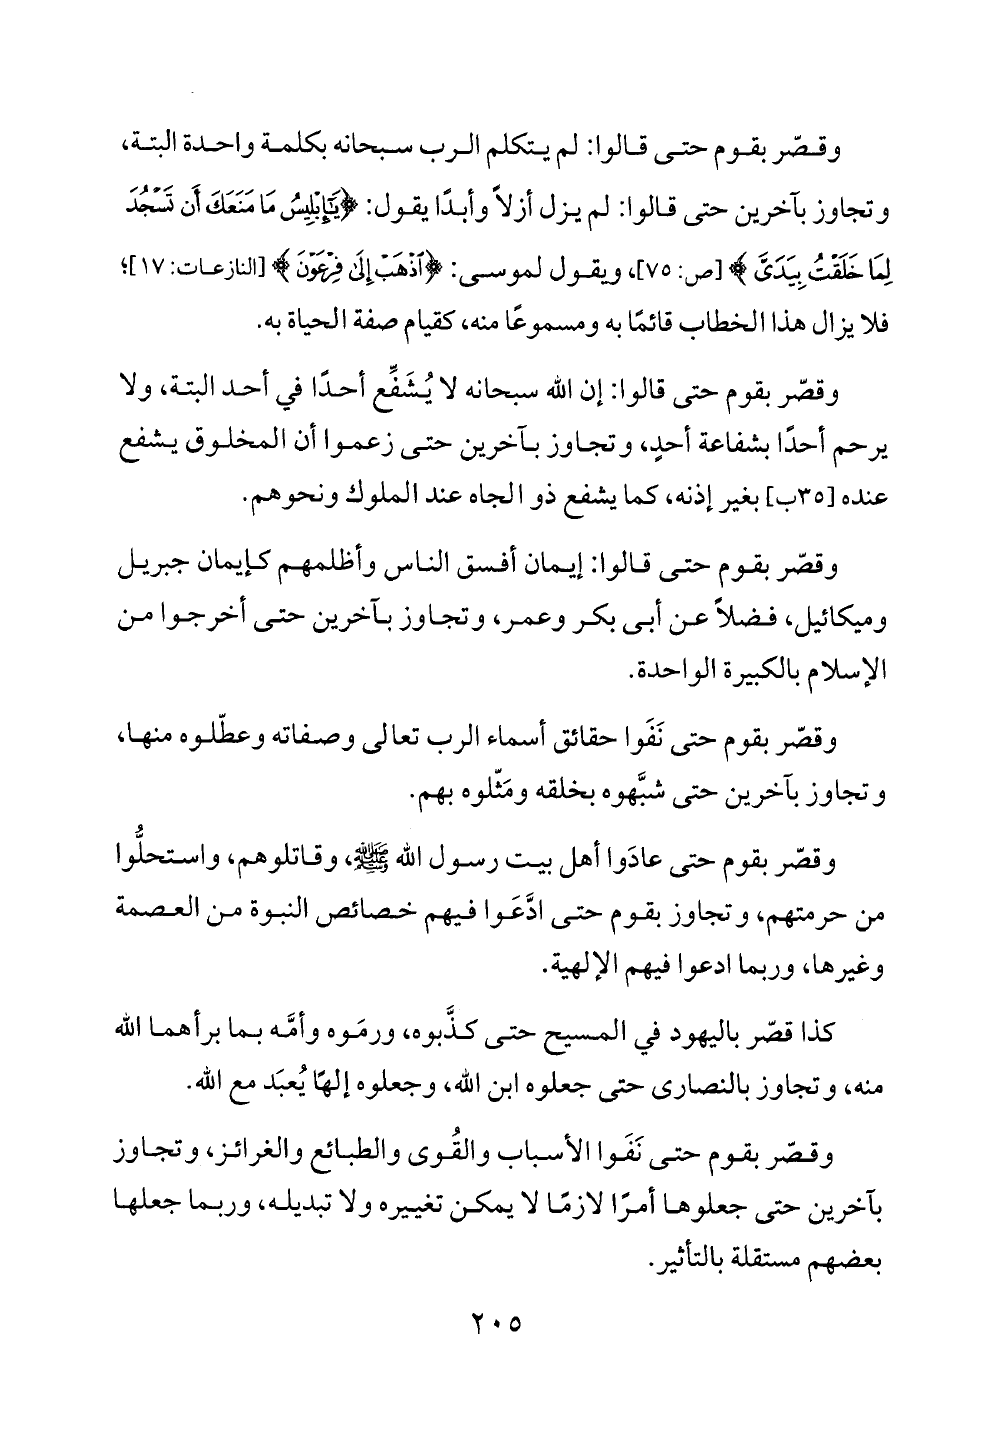 وقصّر بقوم حتى قالوا: لم يتكلم الرب سبحانه بكلمة واحدة البتة،
وتجاوز بآخرين حتى قالوا: لم يزل أزلاً وأبدًا يقول: ﴿يَٰٓإِبْلِيسُ مَا مَنَعَكَ أَن تَسْجُدَ
لِمَا خَلَقْتُ بِيَدَىَّ﴾ [ص: ٧٥]، ويقول لموسى: ﴿ٱذْهَبْ إِلَىٰ فِرْعَوْنَ﴾ [النازعات: ١٧]؛
فلا يزال هذا الخطاب قائمًا به ومسموعًا منه، كقيام صفة الحياة به.
وقصّر بقوم حتى قالوا: إن الله سبحانه لا يُشَفِّع أحدًا في أحد البتة، ولا
يرحم أحدًا بشفاعة أحدٍ، وتجاوز بآخرين حتى زعموا أن المخلوق يشفع
عنده [٣٥ب] بغير إذنه، كما يشفع ذو الجاه عند الملوك ونحوهم.
وقصّر بقوم حتى قالوا: إيمان أفسق الناس وأظلمهم كإيمان جبريل
وميكائيل، فضلاً عن أبي بكر وعمر، وتجاوز بآخرين حتى أخرجوا من
الإسلام بالكبيرة الواحدة.
وقصّر بقوم حتى نَفَوا حقائق أسماء الرب تعالى وصفاته وعطّلوه منها،
وتجاوز بآخرين حتى شبَّهوه بخلقه ومَثّلوه بهم.
وقصّر بقوم حتى عادَوا أهل بيت رسول الله ﷺ، وقاتلوهم، واستحلُّوا
من حرمتهم، وتجاوز بقوم حتى ادَّعَوا فيهم خصائص النبوة من العصمة
وغيرها، وربما ادعوا فيهم الإلهية.
كذا قصّر باليهود في المسيح حتى كذَّبوه، ورمَوه وأمَّه بما برأهما الله
منه، وتجاوز بالنصارى حتى جعلوه ابن الله، وجعلوه إلهًا يُعبَد مع الله.
وقصّر بقوم حتى نَفَوا الأسباب والقُوى والطبائع والغرائز، وتجاوز
بآخرين حتى جعلوها أمرًا لازمًا لا يمكن تغييره ولا تبديله، وربما جعلها
بعضهم مستقلة بالتأثير.
٢٠٥